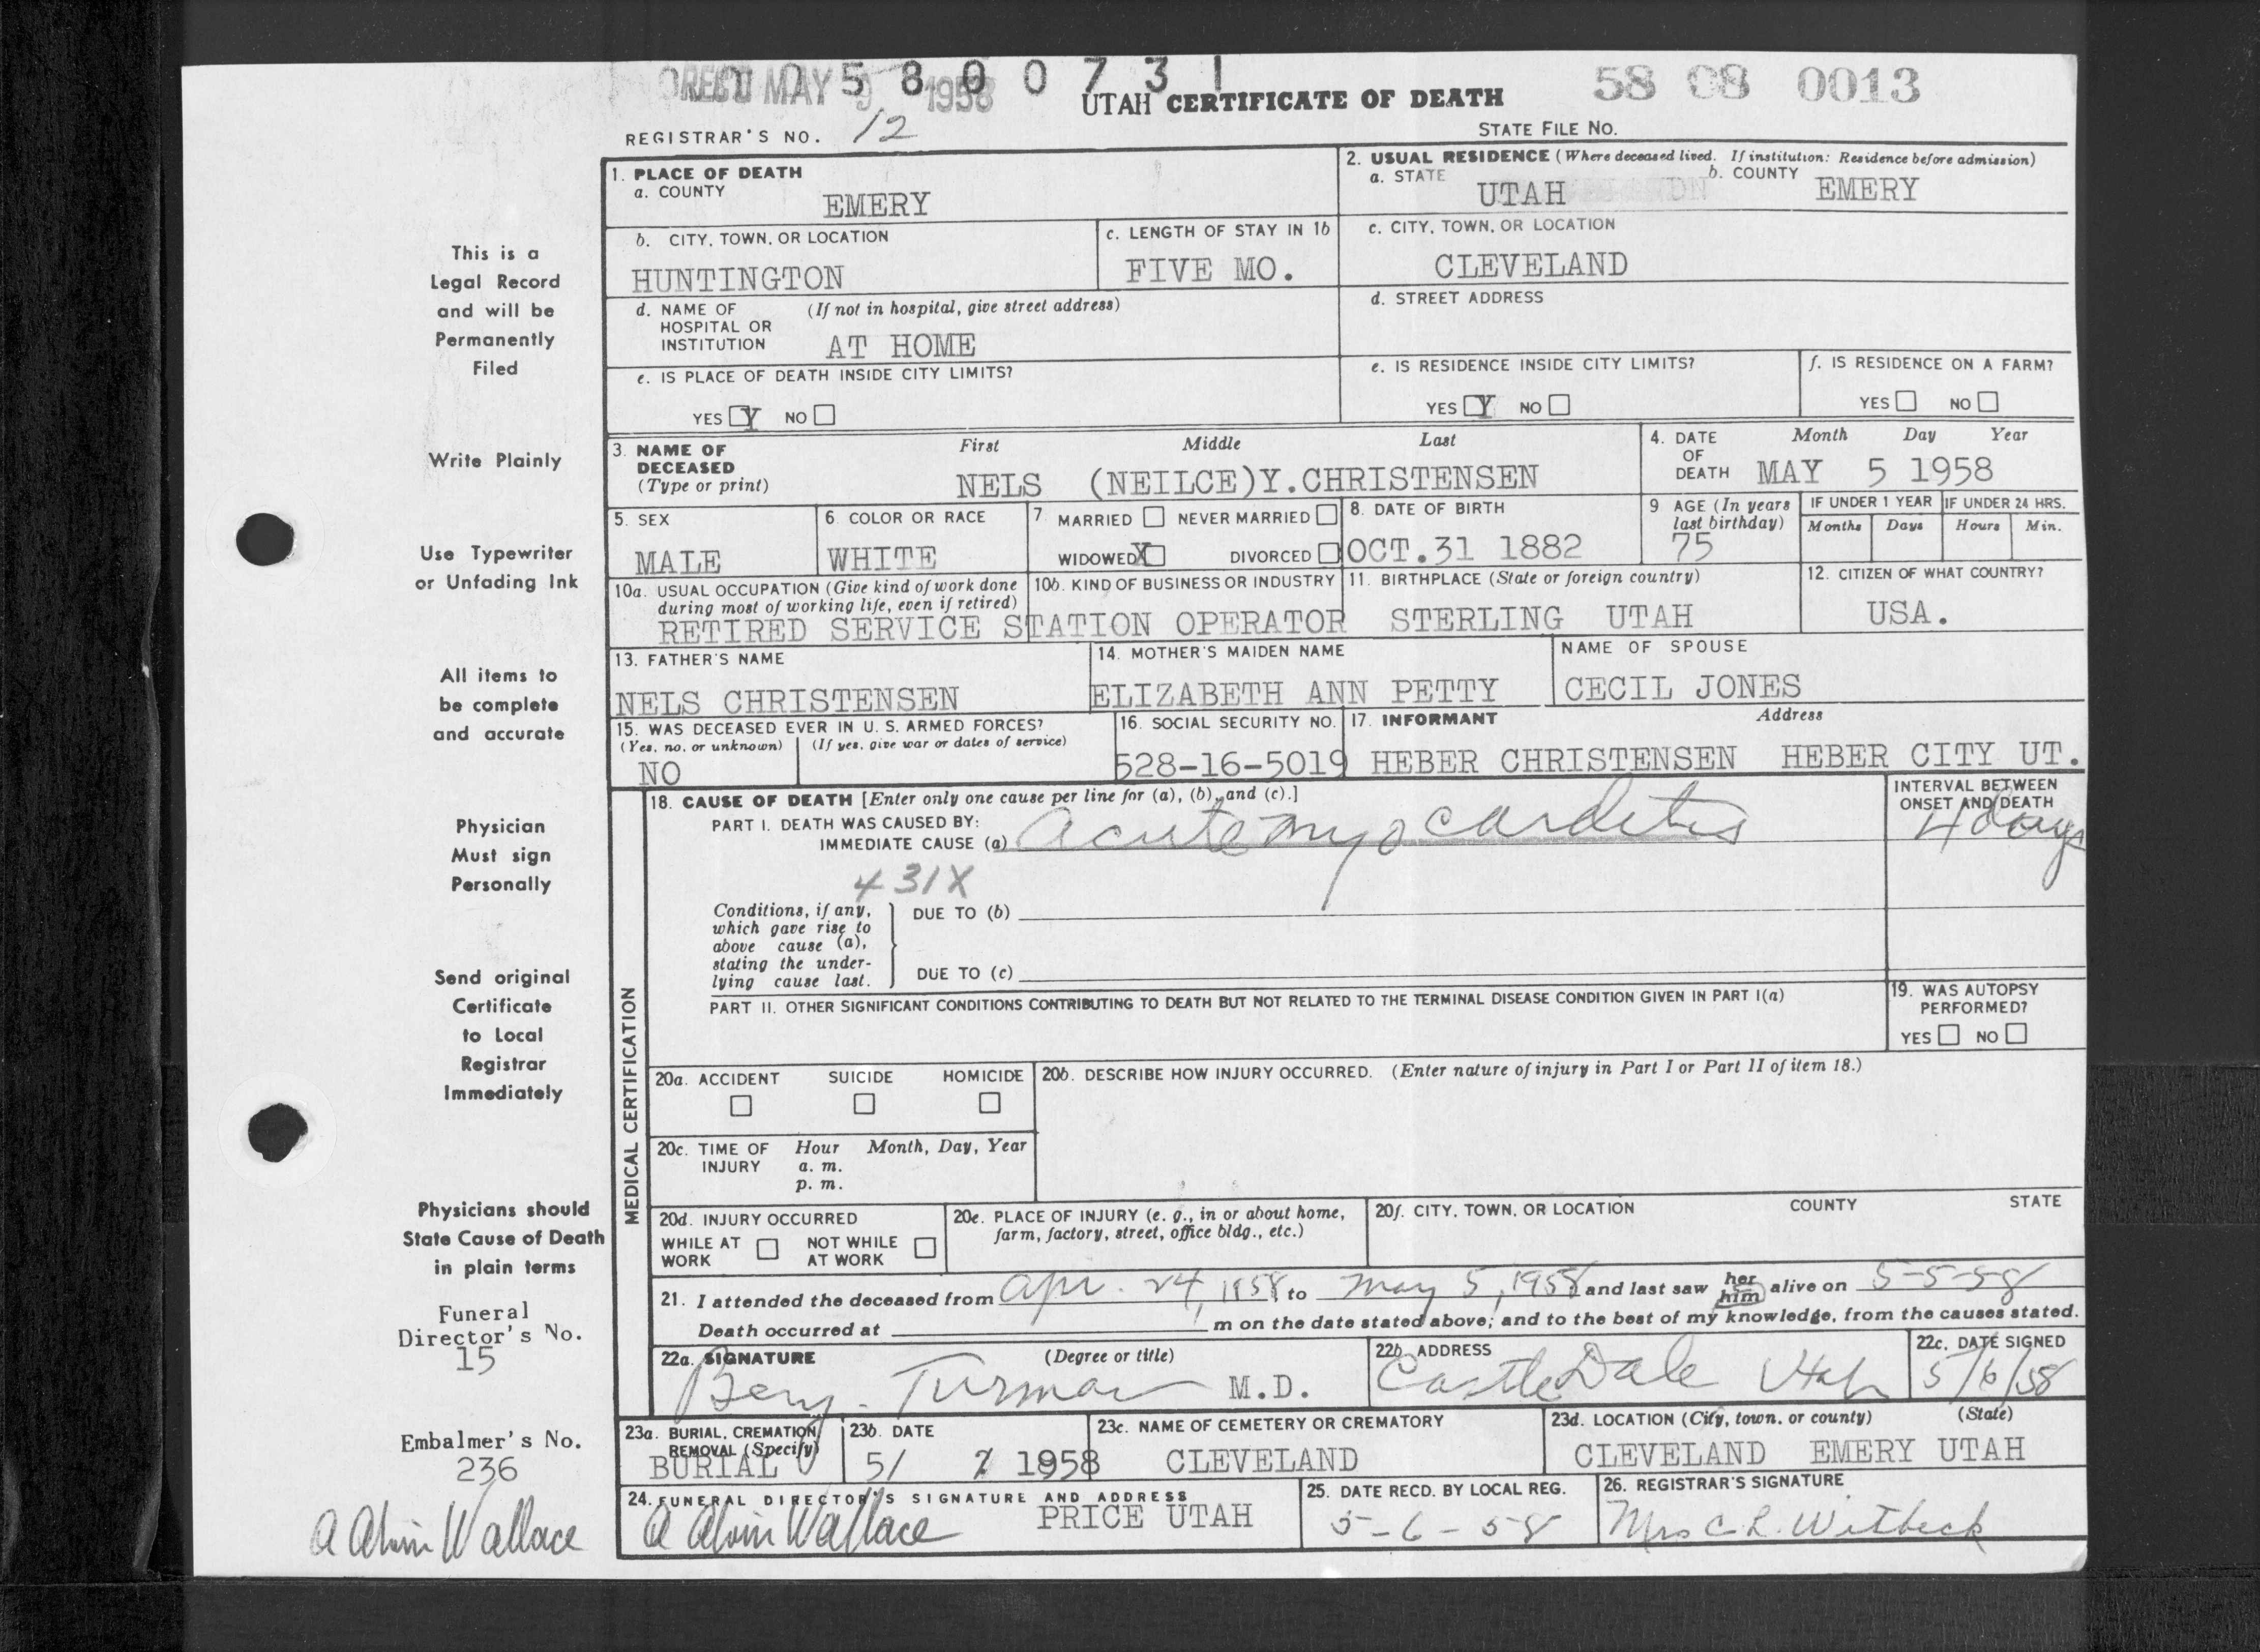 REC'D MAY 9 1958
5 8 0 0 7 3 1
58 08 0013
UTAH CERTIFICATE OF DEATH
REGISTRAR'S NO. 12
STATE FILE NO.
1. PLACE OF DEATH
a. COUNTY
EMERY
2. USUAL RESIDENCE (Where deceased lived. If institution: Residence before admission)
a. STATE UTAH
b. COUNTY EMERY
b. CITY, TOWN, OR LOCATION
HUNTINGTON
c. LENGTH OF STAY IN 1b
FIVE MO.
c. CITY, TOWN, OR LOCATION
CLEVELAND
d. NAME OF (If not in hospital, give street address)
HOSPITAL OR
INSTITUTION AT HOME
d. STREET ADDRESS
e. IS PLACE OF DEATH INSIDE CITY LIMITS?
YES Y NO
e. IS RESIDENCE INSIDE CITY LIMITS?
YES Y NO
f. IS RESIDENCE ON A FARM?
YES NO
3. NAME OF
DECEASED
(Type or print)
First Middle Last
NELS (NEILCE)Y.CHRISTENSEN
4. DATE
OF
DEATH
Month Day Year
MAY 5 1958
5. SEX
MALE
6. COLOR OR RACE
WHITE
7. MARRIED NEVER MARRIED
WIDOWED X DIVORCED
8. DATE OF BIRTH
OCT.31 1882
9 AGE (In years
last birthday)
75
IF UNDER 1 YEAR
Months Days
IF UNDER 24 HRS.
Hours Min.
10a. USUAL OCCUPATION (Give kind of work done
during most of working life, even if retired)
10b. KIND OF BUSINESS OR INDUSTRY
RETIRED SERVICE STATION OPERATOR
11. BIRTHPLACE (State or foreign country)
STERLING UTAH
12. CITIZEN OF WHAT COUNTRY?
USA.
13. FATHER'S NAME
NELS CHRISTENSEN
14. MOTHER'S MAIDEN NAME
ELIZABETH ANN PETTY
NAME OF SPOUSE
CECIL JONES
15. WAS DECEASED EVER IN U. S. ARMED FORCES?
(Yes, no, or unknown) (If yes, give war or dates of service)
NO
16. SOCIAL SECURITY NO.
528-16-5019
17. INFORMANT Address
HEBER CHRISTENSEN HEBER CITY UT.
MEDICAL CERTIFICATION
18. CAUSE OF DEATH [Enter only one cause per line for (a), (b), and (c).]
PART I. DEATH WAS CAUSED BY:
IMMEDIATE CAUSE (a) Acute myocarditis
INTERVAL BETWEEN
ONSET AND DEATH
4 days
431X
Conditions, if any,
which gave rise to
above cause (a),
stating the under-
lying cause last.
DUE TO (b)
DUE TO (c)
PART II. OTHER SIGNIFICANT CONDITIONS CONTRIBUTING TO DEATH BUT NOT RELATED TO THE TERMINAL DISEASE CONDITION GIVEN IN PART I(a)
19. WAS AUTOPSY
PERFORMED?
YES NO
20a. ACCIDENT SUICIDE HOMICIDE
20b. DESCRIBE HOW INJURY OCCURRED. (Enter nature of injury in Part I or Part II of item 18.)
20c. TIME OF Hour Month, Day, Year
INJURY a. m.
p. m.
20d. INJURY OCCURRED
WHILE AT NOT WHILE
WORK AT WORK
20e. PLACE OF INJURY (e. g., in or about home,
farm, factory, street, office bldg., etc.)
20f. CITY, TOWN, OR LOCATION COUNTY STATE
21. I attended the deceased from Apr. 24, 1958, to May 5, 1958 and last saw her him alive on 5-5-58
Death occurred at m on the date stated above; and to the best of my knowledge, from the causes stated.
22a. SIGNATURE (Degree or title)
Benj. Turman M.D.
22b. ADDRESS
Castle Dale Utah
22c. DATE SIGNED
5/6/58
23a. BURIAL, CREMATION,
REMOVAL (Specify)
BURIAL
23b. DATE
5/ 7 1958
23c. NAME OF CEMETERY OR CREMATORY
CLEVELAND
23d. LOCATION (City, town, or county) (State)
CLEVELAND EMERY UTAH
24. FUNERAL DIRECTOR'S SIGNATURE AND ADDRESS
A Alvin Wallace PRICE UTAH
25. DATE RECD. BY LOCAL REG.
5-6-58
26. REGISTRAR'S SIGNATURE
Mrs C. R. Witbeck
This is a
Legal Record
and will be
Permanently
Filed
Write Plainly
Use Typewriter
or Unfading Ink
All items to
be complete
and accurate
Physician
Must sign
Personally
Send original
Certificate
to Local
Registrar
Immediately
Physicians should
State Cause of Death
in plain terms
Funeral
Director's No.
15
Embalmer's No.
236
A Alvin Wallace